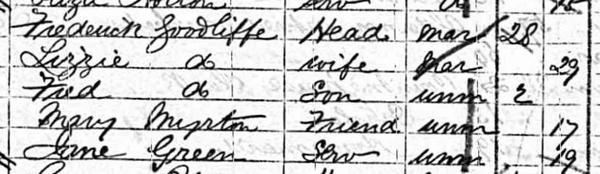 Serv
Frederick Goodliffe Head Mar 28
Lizzie do wife Mar 29
Fred do Son unm 2
Mary Myrton Friend unm 17
Jane Green Serv unm 19